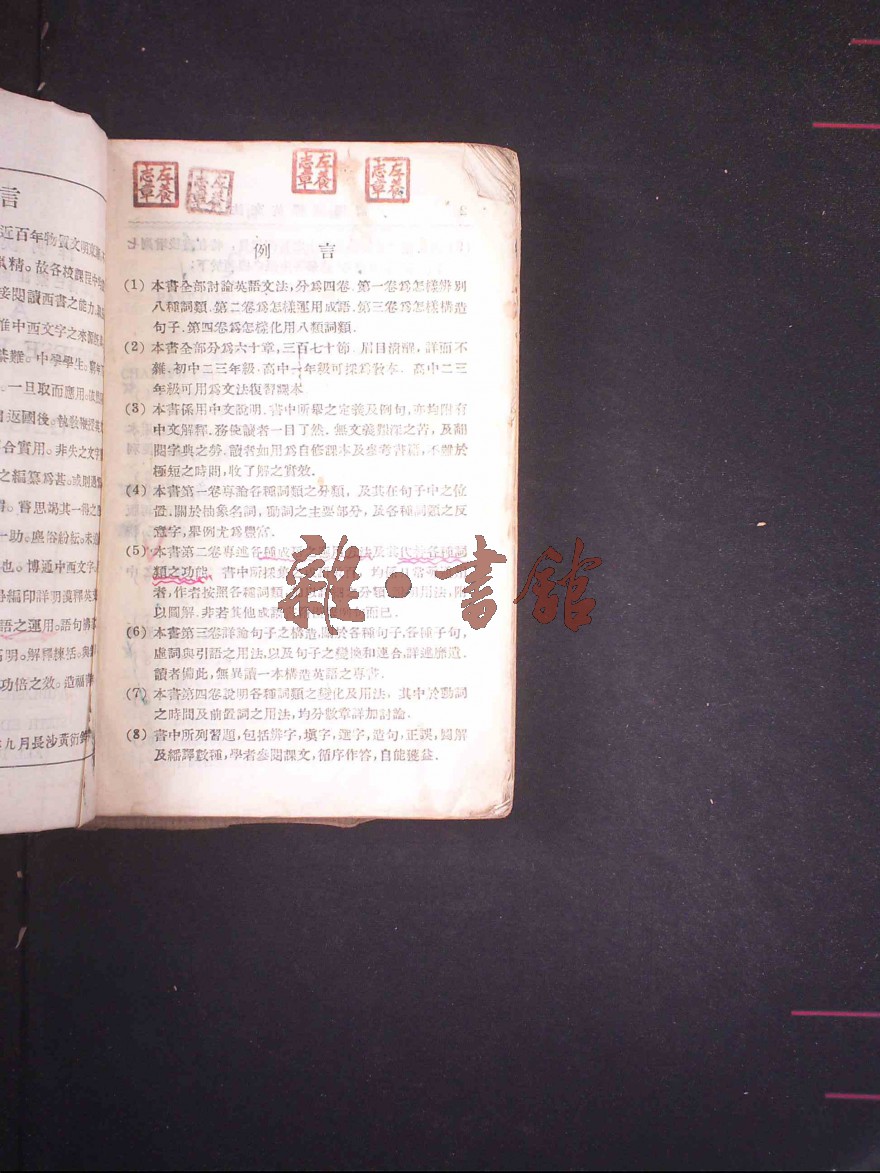 言
近百年物質文明
精。故各校課程中
接閱讀西書之能力
惟中西文字之來源
綦難。中學學生。
。一旦取而應用。依然
返國後。執
合實用。非失之文字
之編纂爲甚。或則過
嘗思竭其一得之
一助。塵俗紛紜。未
也。博通中西文字。
編印詳明漢釋英
語之運用。語句
明。解釋練活。與
功倍之效。造福
九月長沙黃衍
左養志章
左養志章
左養志章
左養志章
例言
(1) 本書全部討論英語文法,分爲四卷.第一卷爲怎樣辨別
八種詞類.第二卷爲怎樣運用成語.第三卷爲怎樣構造
句子.第四卷爲怎樣化用八類詞類.
(2) 本書全部分爲六十章,三百七十節.眉目清醒,詳而不
雜.初中二三年級.高中一年級可採爲教本.高中二三
年級可用爲文法復習課本
(3) 本書係用中文說明.書中所舉之定義及例句,亦均附有
中文解釋.務使讀者一目了然.無文義艱深之苦,及翻
閱字典之勞.讀者如用爲自修課本及參考書籍,不難於
極短之時間,收了解之實效.
(4) 本書第一卷專論各種詞類之分類,及其在句子中之位
置.關於抽象名詞,動詞之主要部分,及各種詞類之反
意字,舉例尤爲豐富.
(5) 本書第二卷專述各種成語之運用方法及其代替各種詞
類之功能.書中所採
者,作者按照各種詞類
以圖解.非若其他成語而已.
(6) 本書第三卷詳論句子之構造.關於各種句子,各種子句,
虛詞與引語之用法,以及句子之變換和連合,詳述靡遺.
讀者備此,無異讀一本構造英語之專書.
(7) 本書第四卷說明各種詞類之變化及用法,其中於動詞
之時間及前置詞之用法,均分數章詳加討論.
(8) 書中所列習題,包括辨字,填字,選字,造句,正誤,圖解
及繙譯數種,學者參閱課文,循序作答,自能獲益.
雜·書館